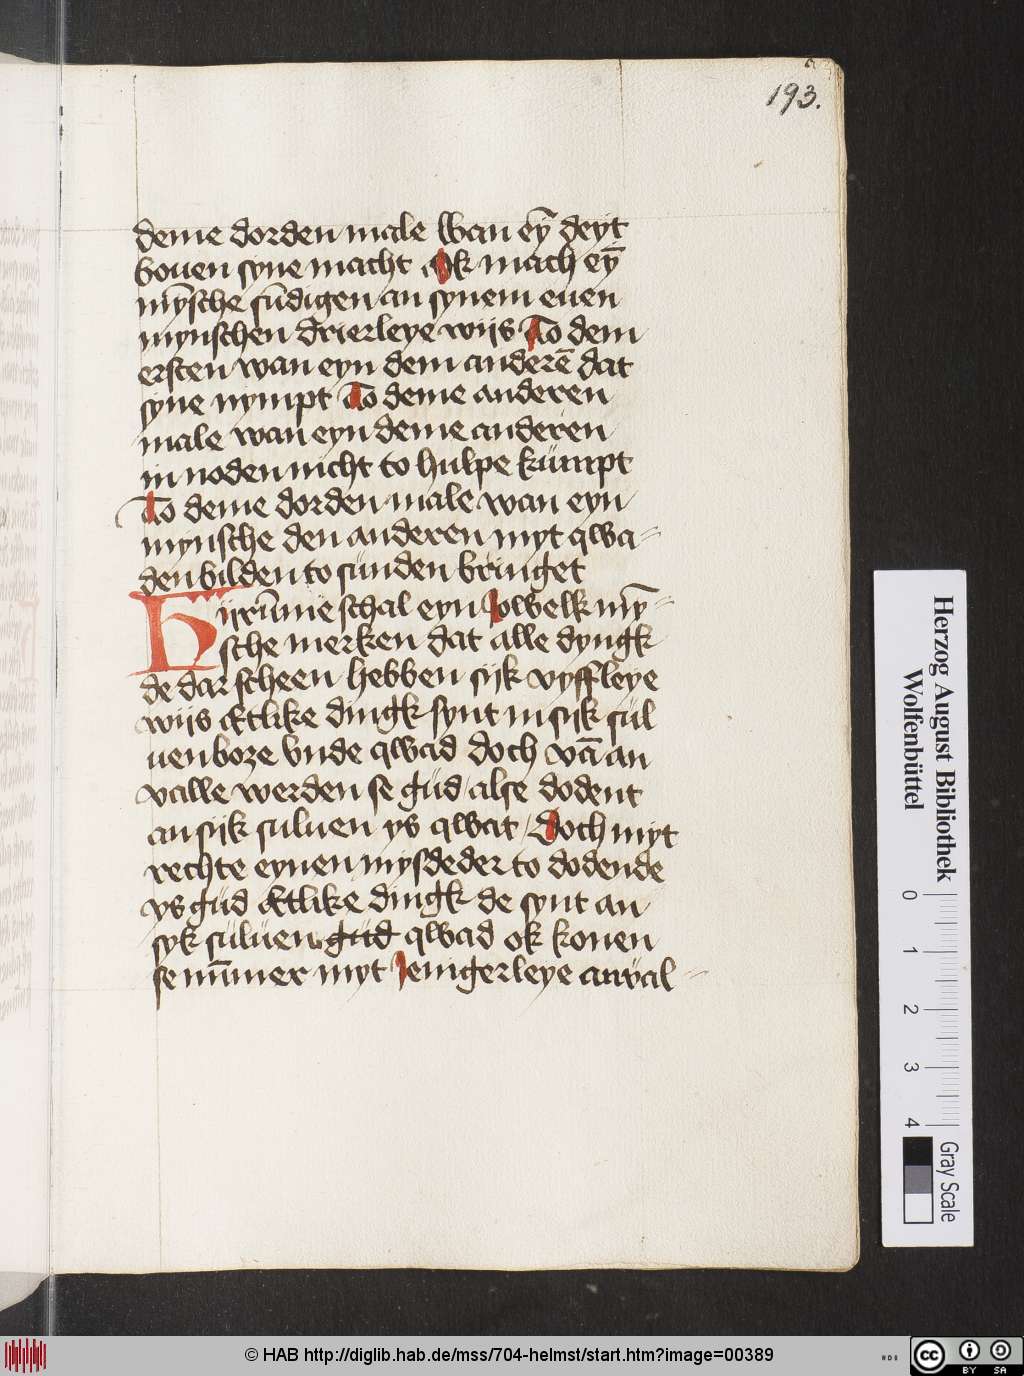 193.
deme dorden male wan eȳ deyt
bouen syne macht Ok mach eȳ
mȳsche sūdigen an synem euen
mynschen drierleye wijs To dem
ersten wan eyn dem anderē dat
syne nympt To deme anderen
male wan eyn deme anderen
in noden nicht to hulpe kümpt
To deme dorden male wan eyn
mynsche den anderen myt qwa-
den bilden to sünden bringet
Hijrūme schal eyn Jowelk mȳ-
sche merken dat alle dyngk
de dar scheen hebben sijk vyffleye
wijs Etlike dingk synt in sijk sül
uen boze vnde qwad doch vā an
valle werden se güd / alse dodent
an sijk suluen ys qwat / Doch myt
rechte eynen mysdeder to dodende
ys güd Etlike dingk de synt an
syk süluen güd qwad ok konen
se nūmer myt Jenigerleye anval-
Herzog August Bibliothek
Wolfenbüttel
0 1 2 3 4
Gray Scale
© HAB http://diglib.hab.de/mss/704-helmst/start.htm?image=00389
HAB
cc BY SA